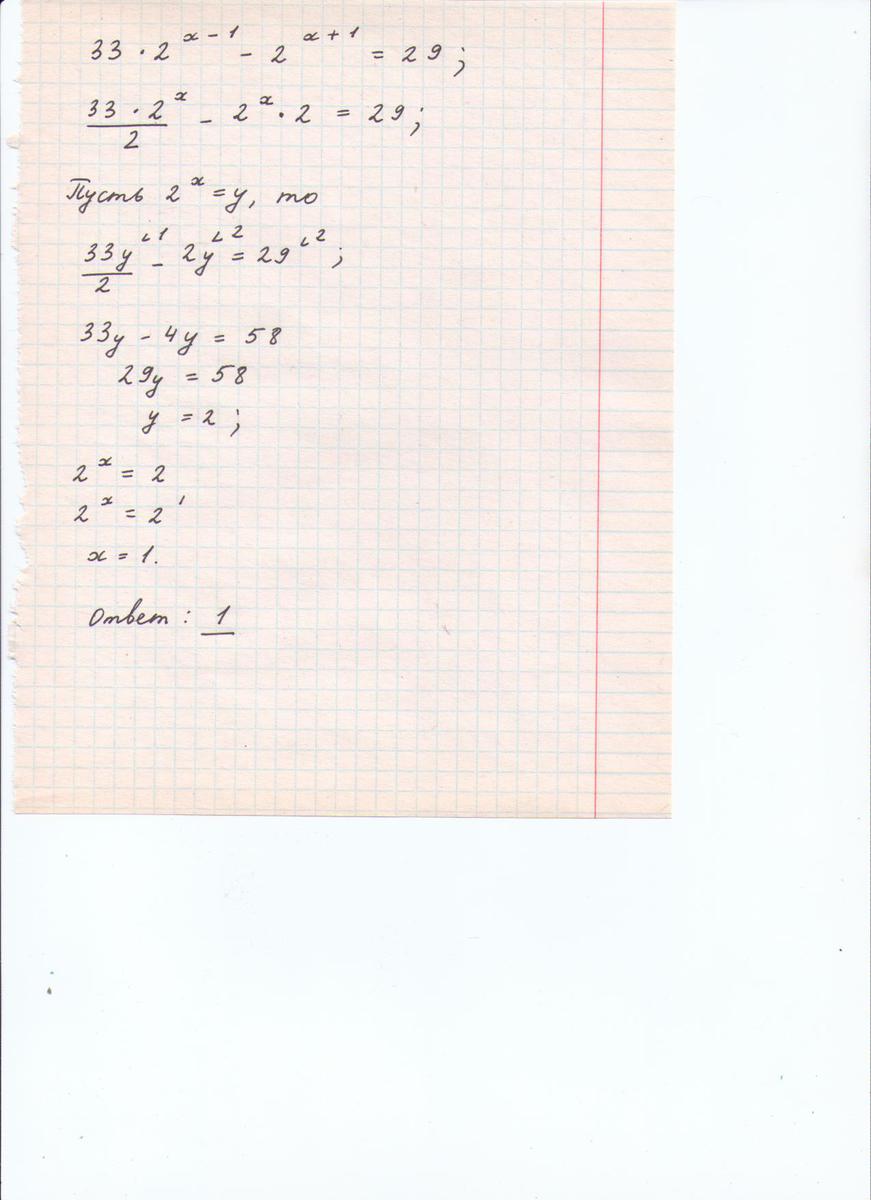 33 · 2^(x-1) - 2^(x+1) = 29;
33 · 2^x / 2 - 2^x · 2 = 29;
Пусть 2^x = y, то
33y^(∟1) / 2 - 2y^(∟2) = 29^(∟2);
33y - 4y = 58
29y = 58
y = 2;
2^x = 2
2^x = 2^1
x = 1.
Ответ: 1